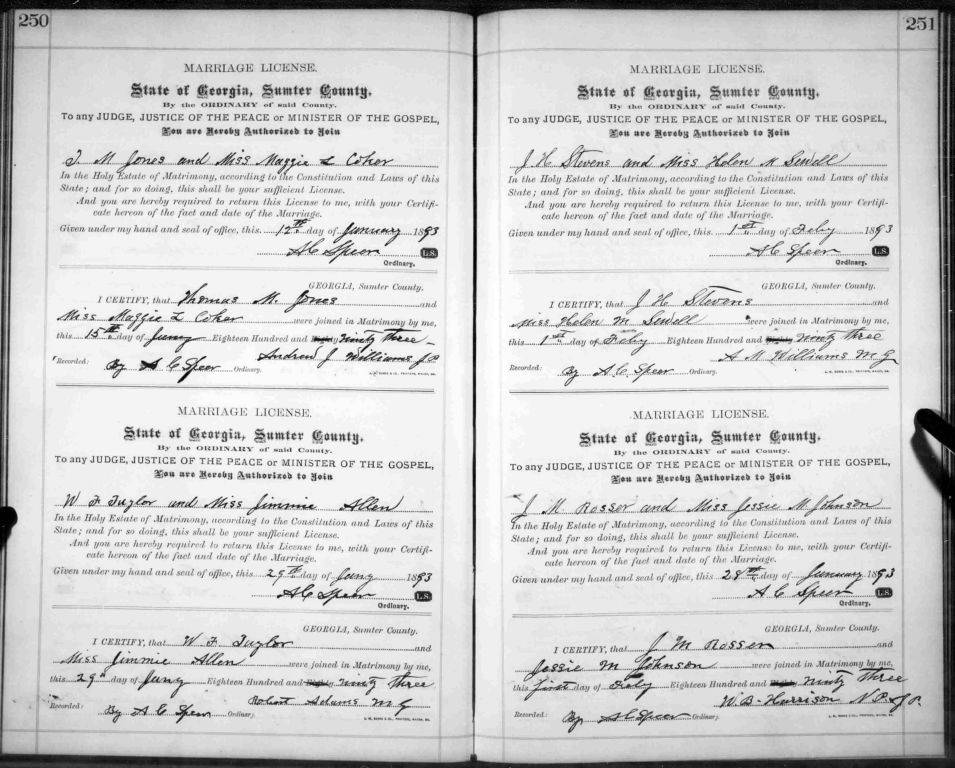 250
MARRIAGE LICENSE.
State of Georgia, Sumter County.
By the ORDINARY of said County.
To any JUDGE, JUSTICE OF THE PEACE or MINISTER OF THE GOSPEL,
You are Hereby Authorized to Join
T. M Jones and Miss Maggie L Coker
In the Holy Estate of Matrimony, according to the Constitution and Laws of this
State; and for so doing, this shall be your sufficient License.
And you are hereby required to return this License to me, with your Certifi-
cate hereon of the fact and date of the Marriage.
Given under my hand and seal of office, this 12th day of January 1893
A C Speer L.S.
Ordinary.
GEORGIA, Sumter County.
I CERTIFY, that Thomas M. Jones and
Miss Maggie L Coker were joined in Matrimony by me,
this 15th day of Jany Eighteen Hundred and Eighty Ninty three
Andrew J Williams J.P.
Recorded: By A C Speer Ordinary.
MARRIAGE LICENSE.
State of Georgia, Sumter County.
By the ORDINARY of said County.
To any JUDGE, JUSTICE OF THE PEACE or MINISTER OF THE GOSPEL,
You are Hereby Authorized to Join
W F Taylor and Miss Jimmie Allen
In the Holy Estate of Matrimony, according to the Constitution and Laws of this
State; and for so doing, this shall be your sufficient License.
And you are hereby required to return this License to me, with your Certifi-
cate hereon of the fact and date of the Marriage.
Given under my hand and seal of office, this 29th day of Jany 1893
A C Speer L.S.
Ordinary.
GEORGIA, Sumter County.
I CERTIFY, that W F Taylor and
Miss Jimmie Allen were joined in Matrimony by me,
this 29th day of Jany Eighteen Hundred and Eighty Ninty three
Robert Adams M.G
Recorded: By A C Speer Ordinary.
251
MARRIAGE LICENSE.
State of Georgia, Sumter County.
By the ORDINARY of said County.
To any JUDGE, JUSTICE OF THE PEACE or MINISTER OF THE GOSPEL,
You are Hereby Authorized to Join
J H Stevens and Miss Helen M Sewell
In the Holy Estate of Matrimony, according to the Constitution and Laws of this
State; and for so doing, this shall be your sufficient License.
And you are hereby required to return this License to me, with your Certifi-
cate hereon of the fact and date of the Marriage.
Given under my hand and seal of office, this 1st day of Feby 1893
A C Speer L.S.
Ordinary.
GEORGIA, Sumter County.
I CERTIFY, that J H Stevens and
Miss Helen M Sewell were joined in Matrimony by me,
this 1st day of Feby Eighteen Hundred and Eighty Ninty three
A M Williams M G
Recorded: By A C Speer Ordinary.
MARRIAGE LICENSE.
State of Georgia, Sumter County.
By the ORDINARY of said County.
To any JUDGE, JUSTICE OF THE PEACE or MINISTER OF THE GOSPEL,
You are Hereby Authorized to Join
J M Rosser and Miss Jessie M Johnson
In the Holy Estate of Matrimony, according to the Constitution and Laws of this
State; and for so doing, this shall be your sufficient License.
And you are hereby required to return this License to me, with your Certifi-
cate hereon of the fact and date of the Marriage.
Given under my hand and seal of office, this 28th day of January 1893
A C Speer L.S.
Ordinary.
GEORGIA, Sumter County.
I CERTIFY, that J M Rosser and
Jessie M Johnson were joined in Matrimony by me,
this first day of Feby Eighteen Hundred and Eighty Ninty three
W.B. Harrison N.P. & J.P.
Recorded: By A C Speer Ordinary.